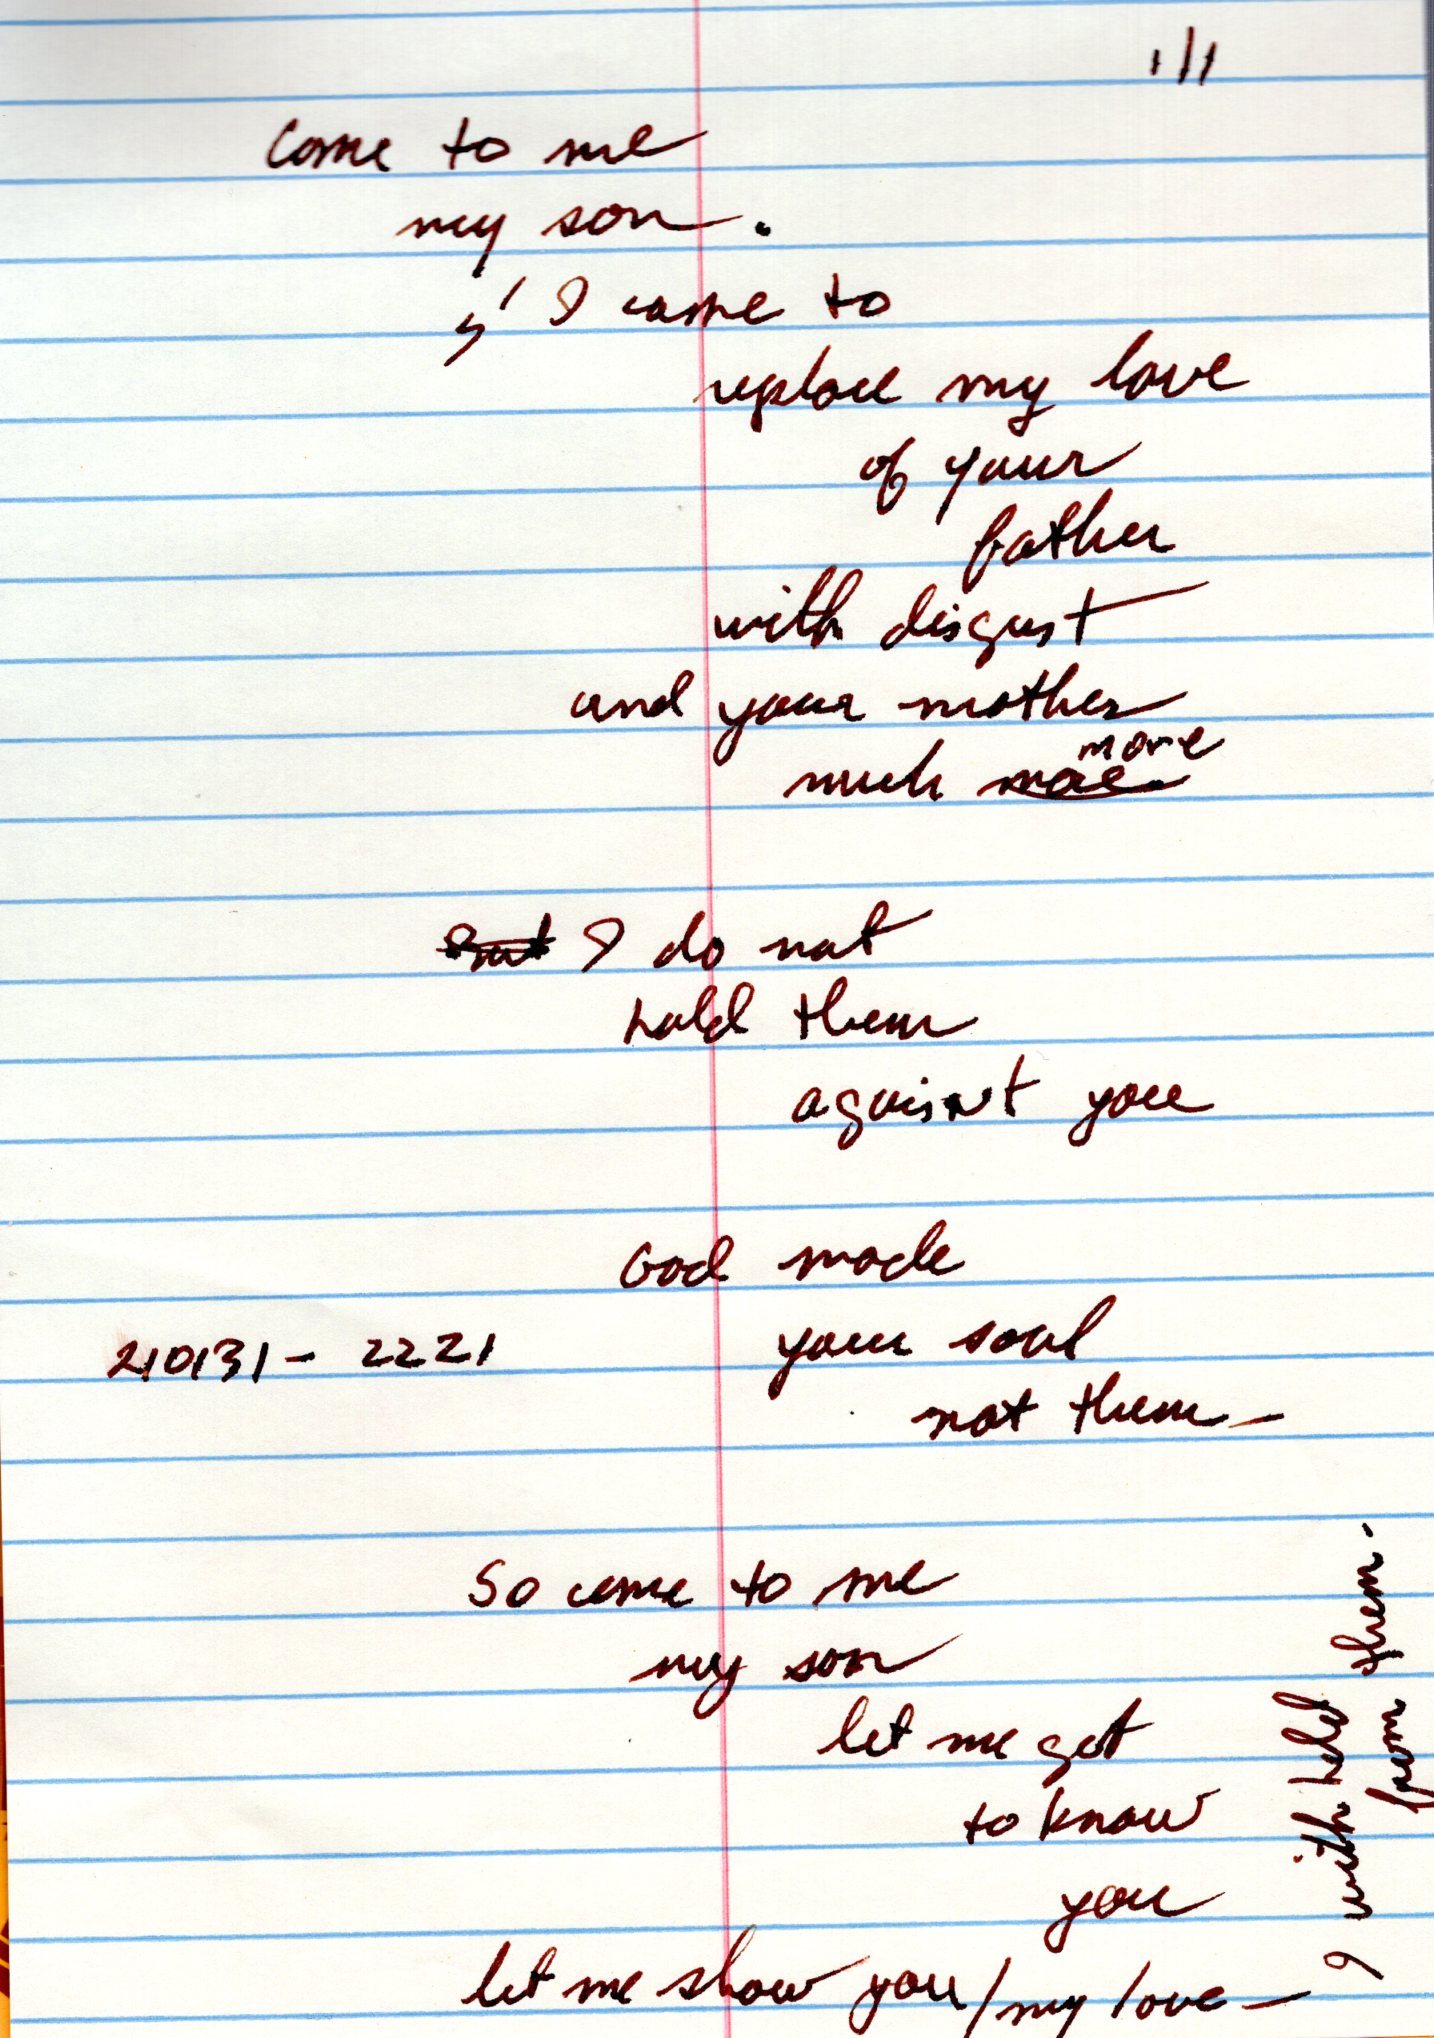 1/1
Come to me
my son.
I came to
replace my love
of your
father
with disgust
and your mother
more
much more.
But I do not
hold them
against you
God made
210131 - 2221 your soul
not them -
So come to me
my son
let me get
to know
you
let me show you / my love -
I with held
from them.